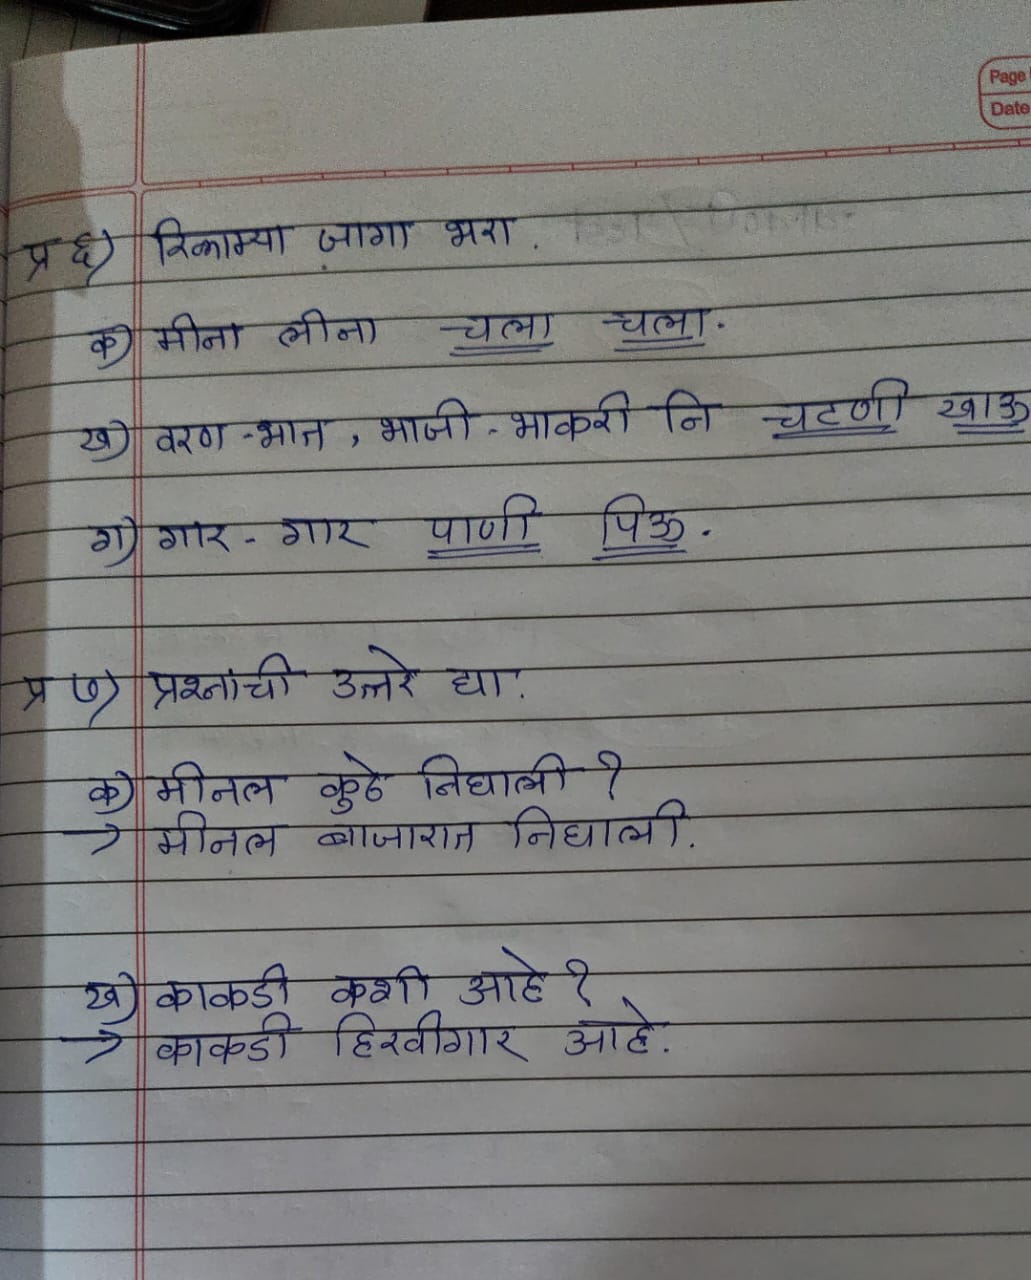 Page
Date
प्र ६) रिकाम्या जागा भरा.
क) मीना लीना चला चला.
ख) वरण-भात, भाजी-भाकरी नि चटणी खाऊ
ग) गार-गार पाणी पिऊ.
प्र ७) प्रश्नांची उत्तरे द्या.
क) मीनल कुठे निघाली?
→ मीनल बाजारात निघाली.
ख) काकडी कशी आहे?
→ काकडी हिरवीगार आहे.